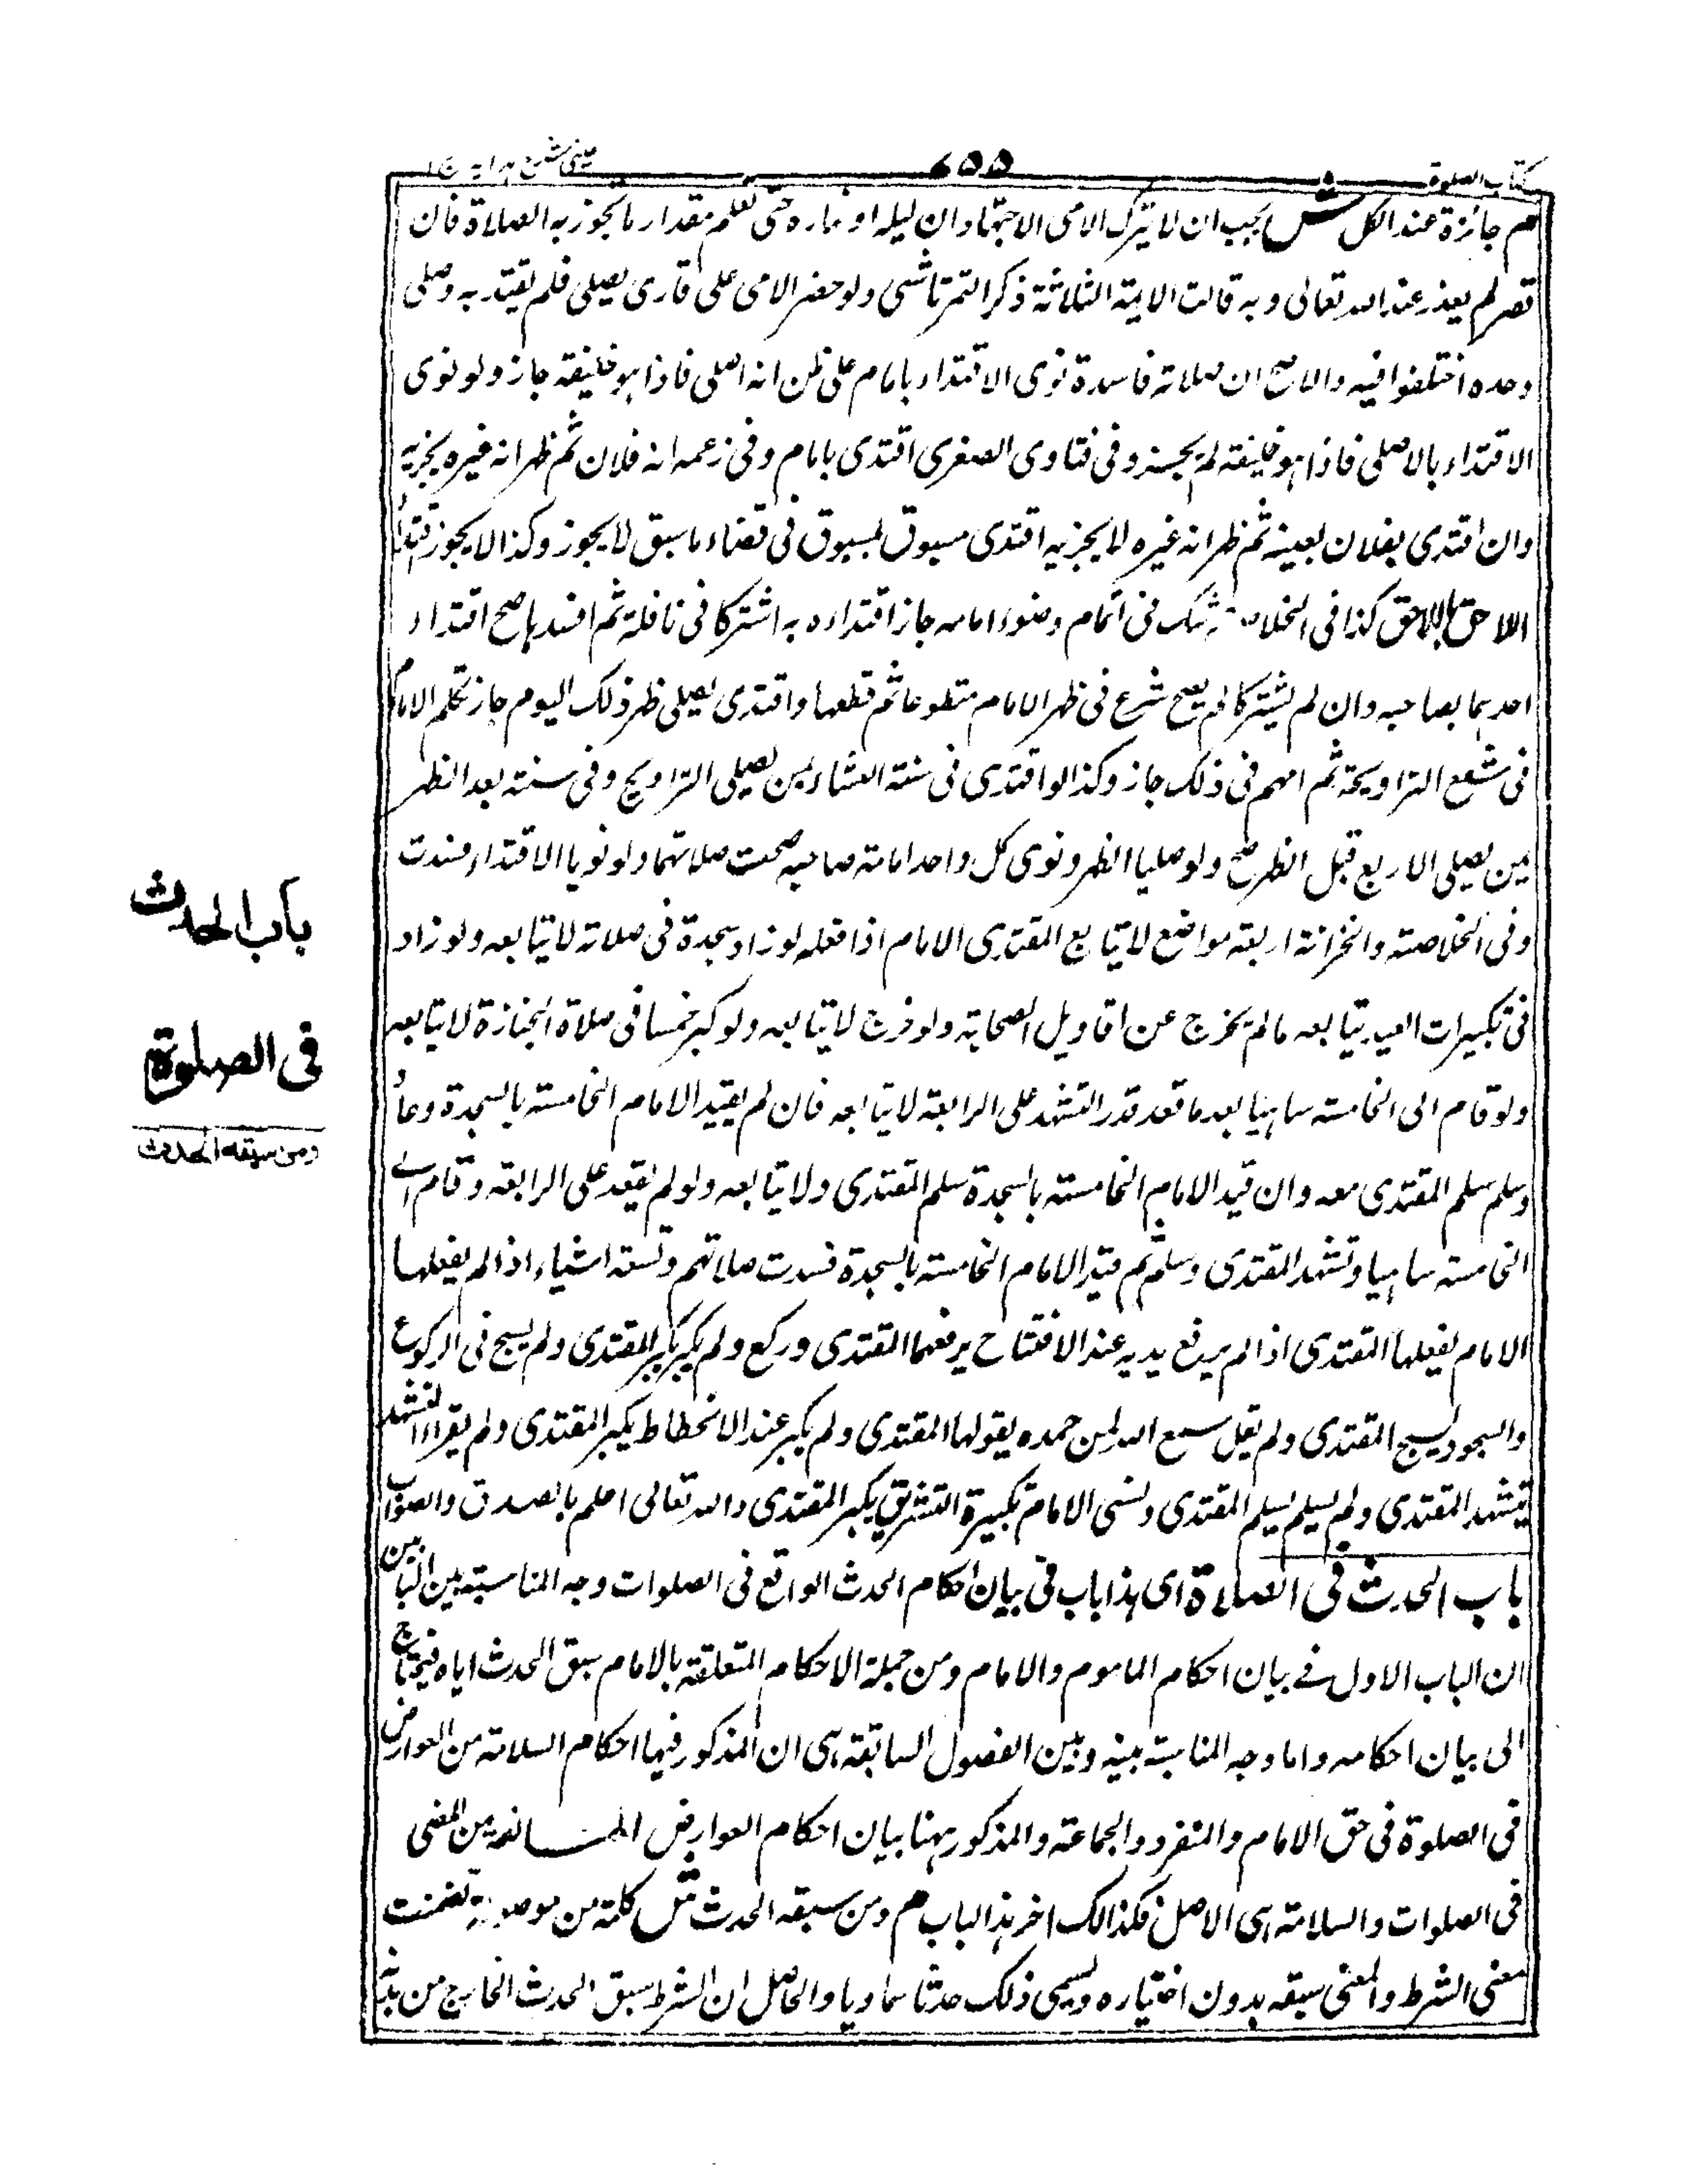 كتاب الصلوة
٦٥٥
عينى شرح هدايه ج ١
م جائزة عند الكل ش يجب ان لا يترك الامى الاجتهاد ان ليله او نهاره حتى تعلم مقدار ما يجوز به الصلاة فان
قصر لم يعذر عند الله تعالى وبه قالت الايمة الثلاثة ذكر التمرتاشى ولو حضر الامى على قارى يصلى فلم يقتد به وصلى
وحده اختلفوا فيه والاصح ان صلاته فاسدة نوى الاقتداء بامام على ظن انه اصلى فاذا هو خليفة جاز ولو نوى
الاقتداء بالاصلى فاذا هو خليفة لم يجز وفى فتاوى الصغرى اقتدى بامام وفى زعمه انه فلان ثم ظهر انه غيره يجزيه
وان اقتدى بفلان بعينه ثم ظهر انه غيره لا يجزيه اقتدى مسبوق لمسبوق فى قضاء ما سبق لا يجوز وكذا لا يجوز اقتداء
اللاحق باللاحق كذا فى الخلاصة شك فى اتمام وضوء امامه جاز اقتداءه به اشتركا فى نافلة ثم افسداها صح اقتداء
احدهما بصاحبه وان لم يشتركا لم يصح شرع فى ظهر الامام متطوعا ثم قطعها واقتدى يصلى ظهر ذلك اليوم جاز تكلم الامام
فى شفع التراويحة ثم امهم فى ذلك جاز وكذا لو اقتدى فى سنة العشاء بمن يصلى التراويح وفى سنة بعد الظهر
بمن يصلى الاربع قبل الظهر صح ولو صليا الظهر ونوى كل واحد امامة صاحبه صحت صلاتهما ولو نويا الاقتداء فسدت
وفى الخلاصة والخزانة اربعة مواضع لا يتابع المقتدى الامام اذا فعله لو زاد سجدة فى صلاته لا يتابعه ولو زاد
فى تكبيرات العيد يتابعه ما لم يخرج عن اقاويل الصحابة ولو خرج لا يتابعه ولو كبر خمسا فى صلاة الجنازة لا يتابعه
ولو قام الى الخامسة ساهيا بعد ما قعد قدر التشهد على الرابعة لا يتابعه فان لم يقيد الامام الخامسة بالسجدة وعاد
وسلم سلم المقتدى معه وان قيد الامام الخامسة بالسجدة سلم المقتدى ولا يتابعه ولو لم يقعد على الرابعة وقام الى
الخامسة ساهيا وتشهد المقتدى وسلم ثم قيد الامام الخامسة بالسجدة فسدت صلاتهم وتسعة اشياء اذا لم يفعلها
الامام يفعلها المقتدى اذا لم يرفع يديه عند الافتتاح يرفعهما المقتدى وركع ولم يكبر يكبر المقتدى ولم يسبح فى الركوع
والسجود يسبح المقتدى ولم يقل سمع الله لمن حمده يقولها المقتدى ولم يكبر عند الانحطاط يكبر المقتدى ولم يقراء التشهد
يتشهد المقتدى ولم يسلم يسلم المقتدى ونسى الامام تكبيرة التشريق يكبر المقتدى والله تعالى اعلم بالصدق والصواب
باب الحدث فى الصلاة اى هذا باب فى بيان احكام الحدث الواقع فى الصلوات وجه المناسبة بين البابين
ان الباب الاول فى بيان احكام الماموم والامام ومن جملة الاحكام المتعلقة بالامام سبق الحدث اياه فيحتاج
الى بيان احكامه واما وجه المناسبة بينه وبين الفصول السابقة هى ان المذكور فيها احكام السلامة من العوارض
فى الصلوة فى حق الامام والمنفرد والجماعة والمذكور ههنا بيان احكام العوارض من المضى
فى الصلوات والسلامة هى الاصل فكذالك اخر هذا الباب م ومن سبقه الحدث ش كلمة من موصولة تضمنت
معنى الشرط والمعنى سبقه بدون اختياره ويسمى ذلك حدثا سماويا والحاصل ان الشرط سبق الحدث الخارج من بدنه
باب الحدث
فى الصلوة
ومن سبقه الحدث